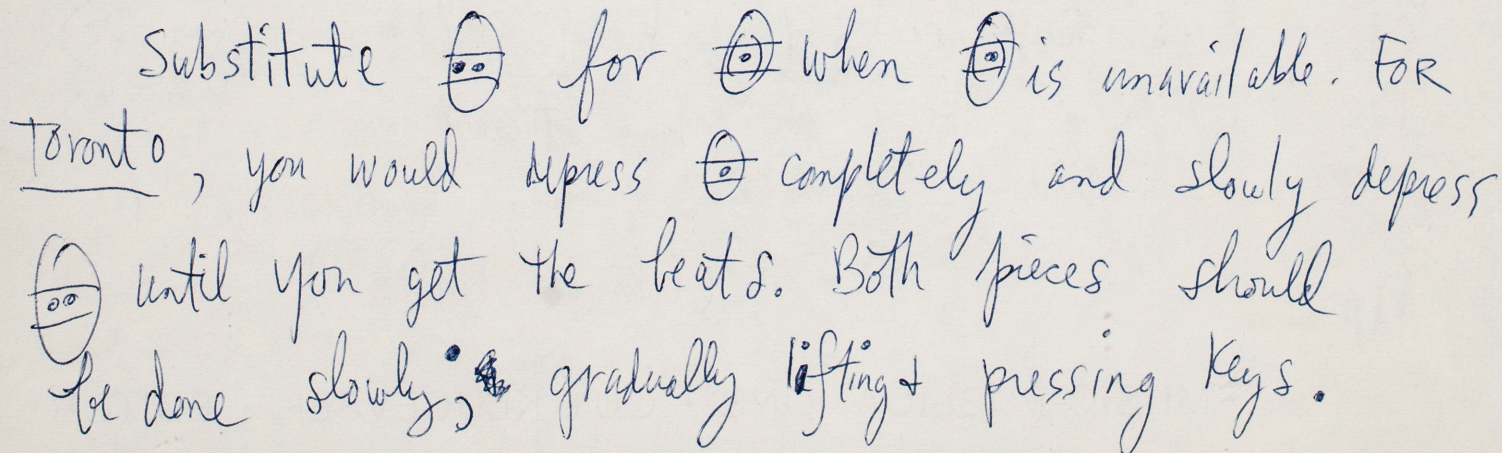 Substitute for when is unavailable. FOR
Toronto, you would depress completely and slowly depress
until you get the beats. Both pieces should
be done slowly; gradually lifting & pressing keys.